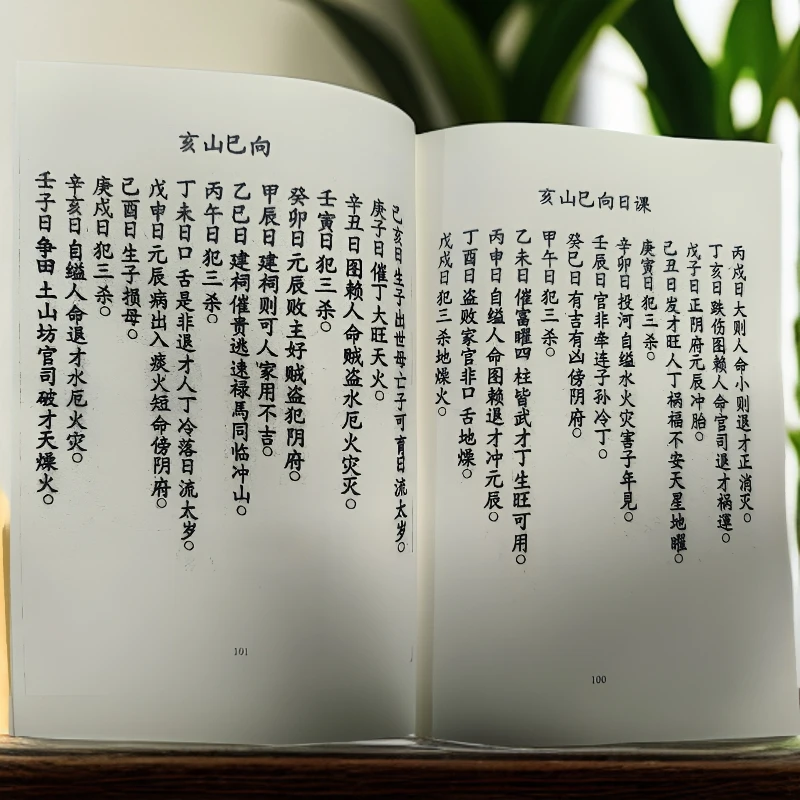 亥山巳向日课
丙戌日大则人命小则退才正消灭。
丁亥日跌伤图赖人命官司退才祸運。
戊子日正阴府元辰冲胎。
己丑日发才旺人丁祸福不安天星地曜。
庚寅日犯三杀。
辛卯日投河自缢水火灾害子年見。
壬辰日官非牵连子孙冷丁。
癸巳日有吉有凶傍阴府。
甲午日犯三杀。
乙未日催富曜四柱皆武才丁生旺可用。
丙申日自缢人命图赖退才冲元辰。
丁酉日盗败家官非口舌地燥。
戊戌日犯三杀地燥火。
100
亥山巳向
己亥日生子出世母亡子可育日流太岁。
庚子日催丁大旺天火。
辛丑日图赖人命贼盗水厄火灾灭。
壬寅日犯三杀。
癸卯日元辰败主好贼盗犯阴府。
甲辰日建祠则可人家用不吉。
乙巳日建祠催贵逃速禄馬同临冲山。
丙午日犯三杀。
丁未日口舌是非退才人丁冷落日流太岁。
戊申日元辰病出入痰火短命傍阴府。
己酉日生子损母。
庚戌日犯三杀。
辛亥日自缢人命退才水厄火灾。
壬子日争田土山坊官司破才天燥火。
101